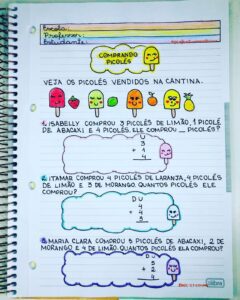 Escola:
Professor:
Estudante:
COMPRANDO
PICOLÉS
VEJA OS PICOLÉS VENDIDOS NA CANTINA.
1. ISABELLY COMPROU 3 PICOLÉS DE LIMÃO, 1 PICOLÉ
DE ABACAXI E 4 PICOLÉS. ELE COMPROU PICOLÉS?
D U
3
+ 1
4
2. ITAMAR COMPROU 4 PICOLÉS DE LARANJA, 4 PICOLÉS
DE LIMÃO E 3 DE MORANGO. QUANTOS PICOLÉS ELE
COMPROU?
D U
4
+ 4
3
3. MARIA CLARA COMPROU 5 PICOLÉS DE ABACAXI, 2 DE
MORANGO E 4 DE LIMÃO. QUANTOS PICOLÉS ELA COMPROU?
D U
5
+ 2
4
tilibra